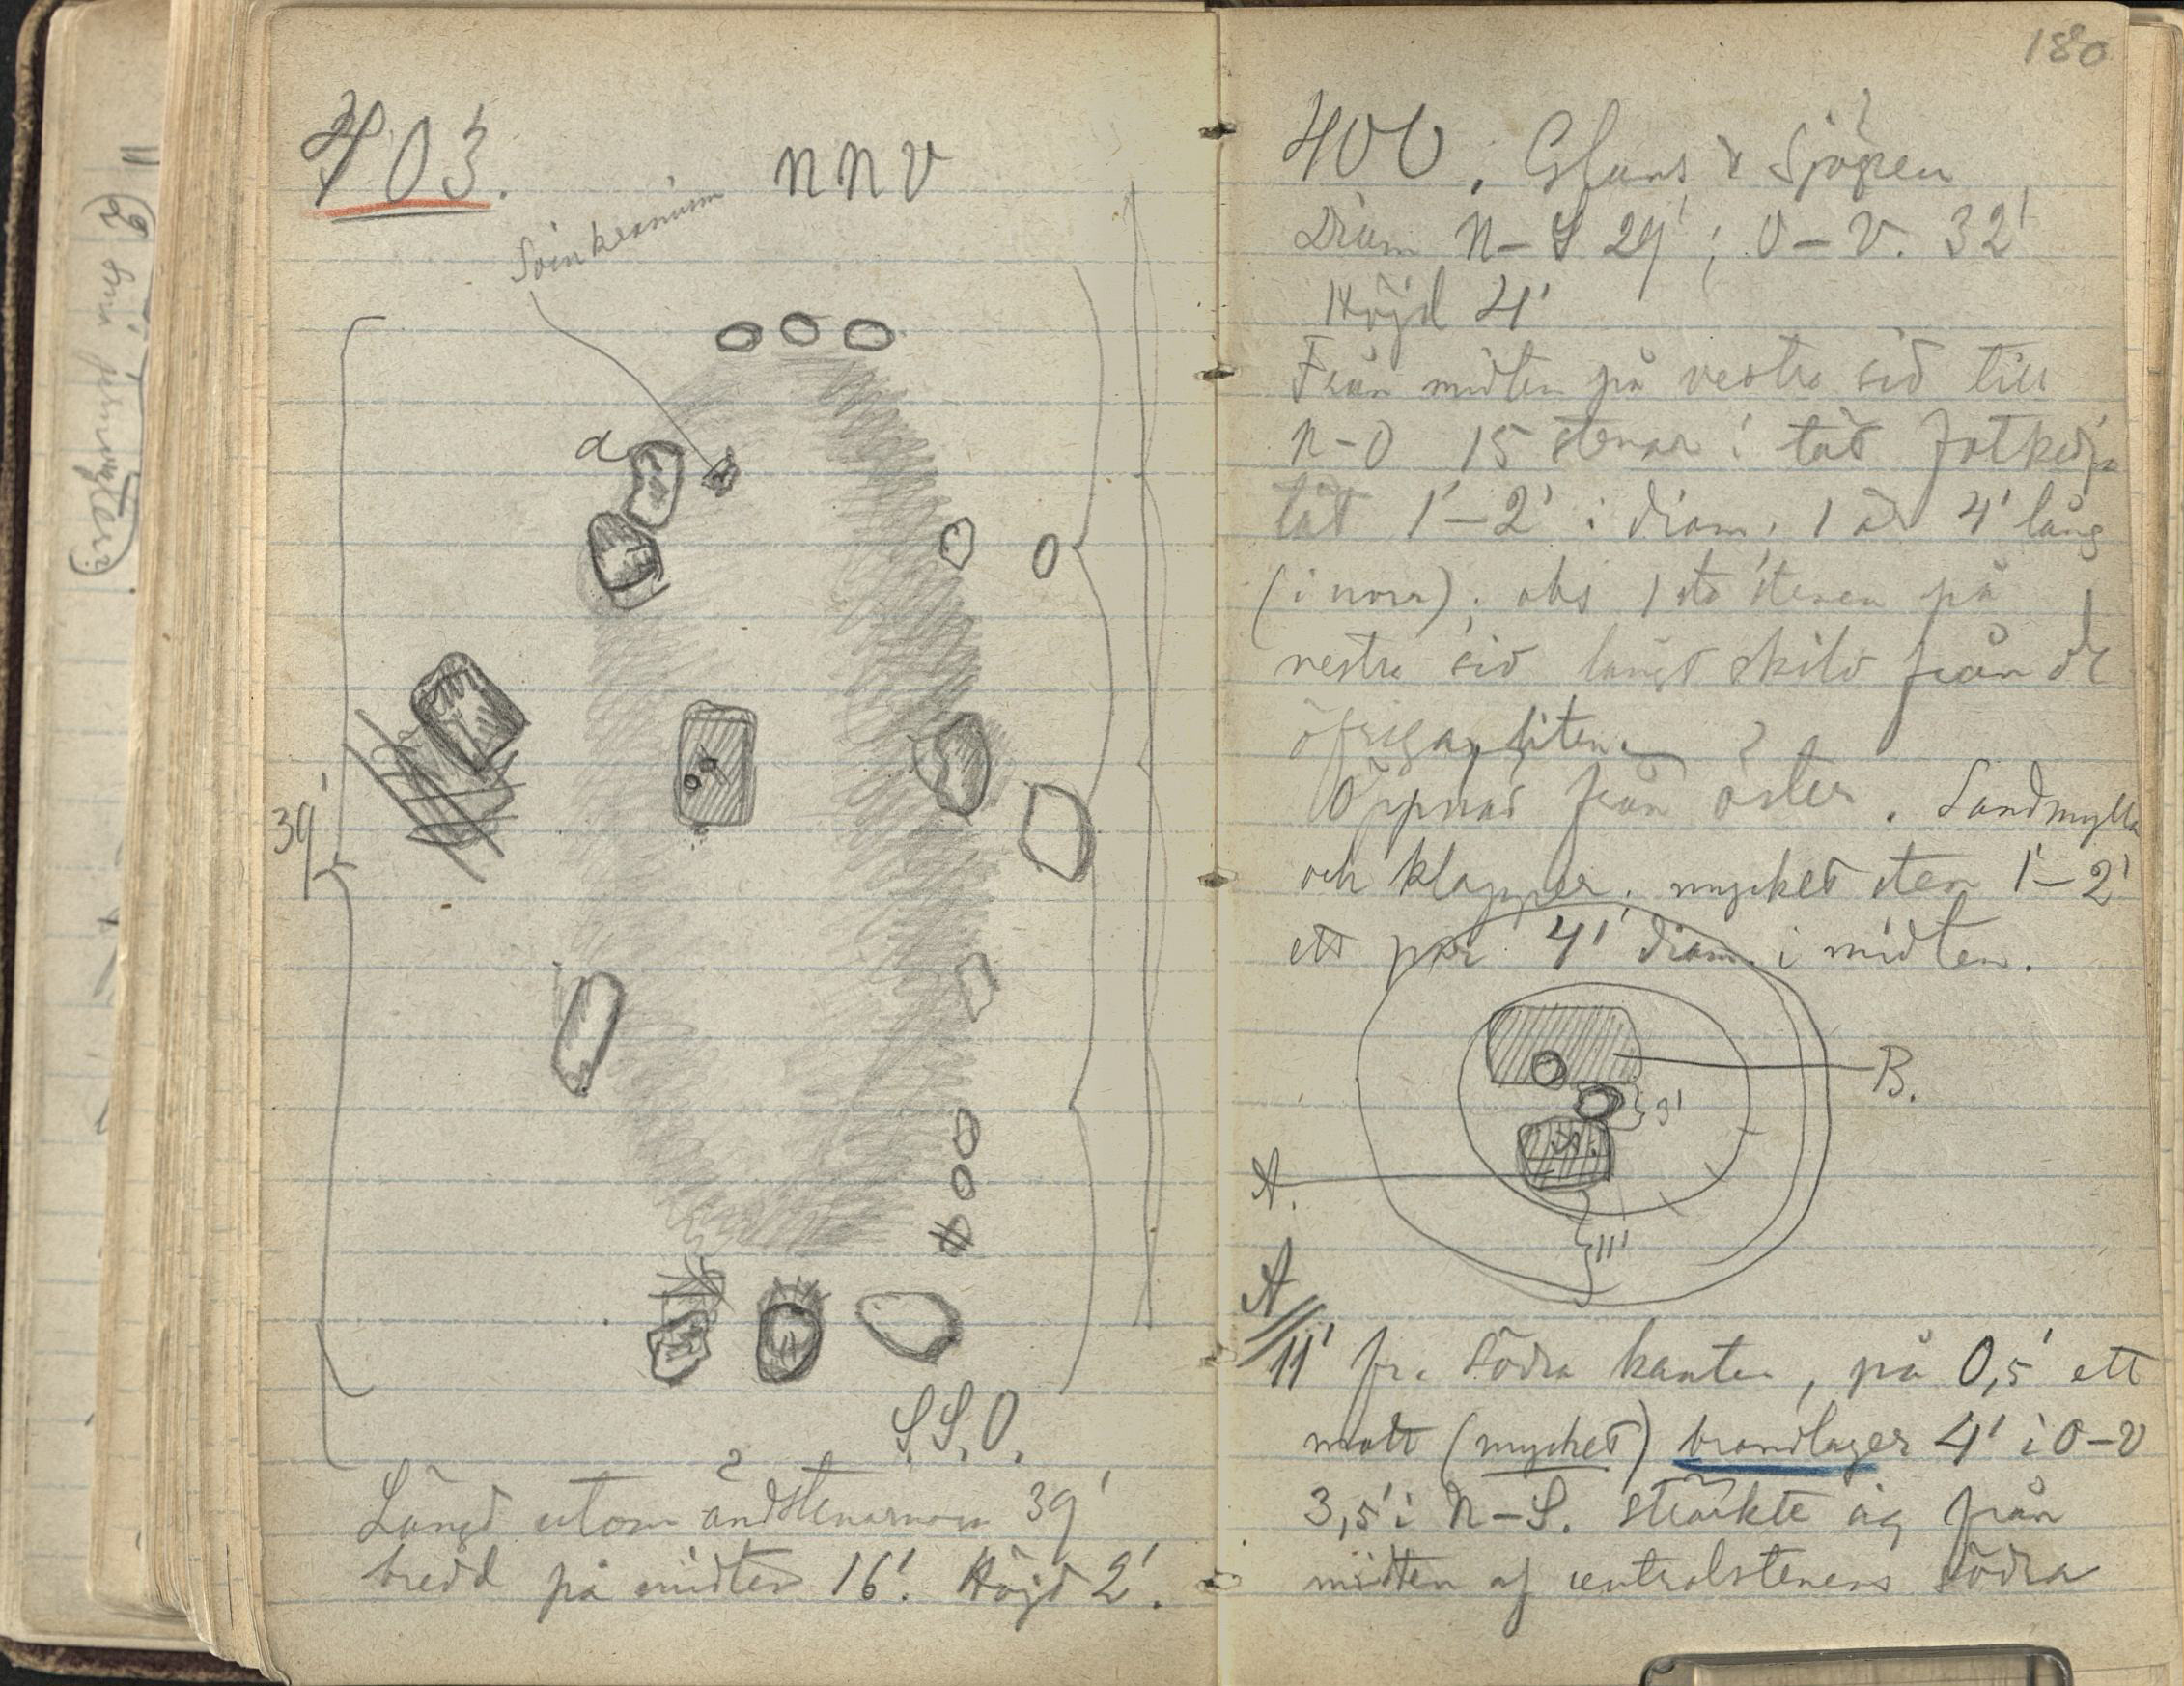 403.
n n v
a
39'
S.S.O.
Längd utom ändstenarna 39'
bredd på midten 16'. Höjd 2'.
180
400.
Diam N–S 29'; O–V. 32'
Höjd 4'
Från midten på vestra sid till
N–O 15 stenar i tät fotkedja
tät 1'–2' i diam. 1 är 4' lång
(i norr), obs 1sta stenen på
vestra sid längst skild från de
öfriga, liten.
Öppnad från öster. Sandmylla
och klapper. mycket sten 1'–2'
ett par 4' diam. i midten.
B.
3'
A.
11'
A
11' fr. södra kanten, på 0,5' ett
matt (mycket) brandlager 4' i O–V
3,5' i N–S. sträckte sig från
midten af centralstenens södra